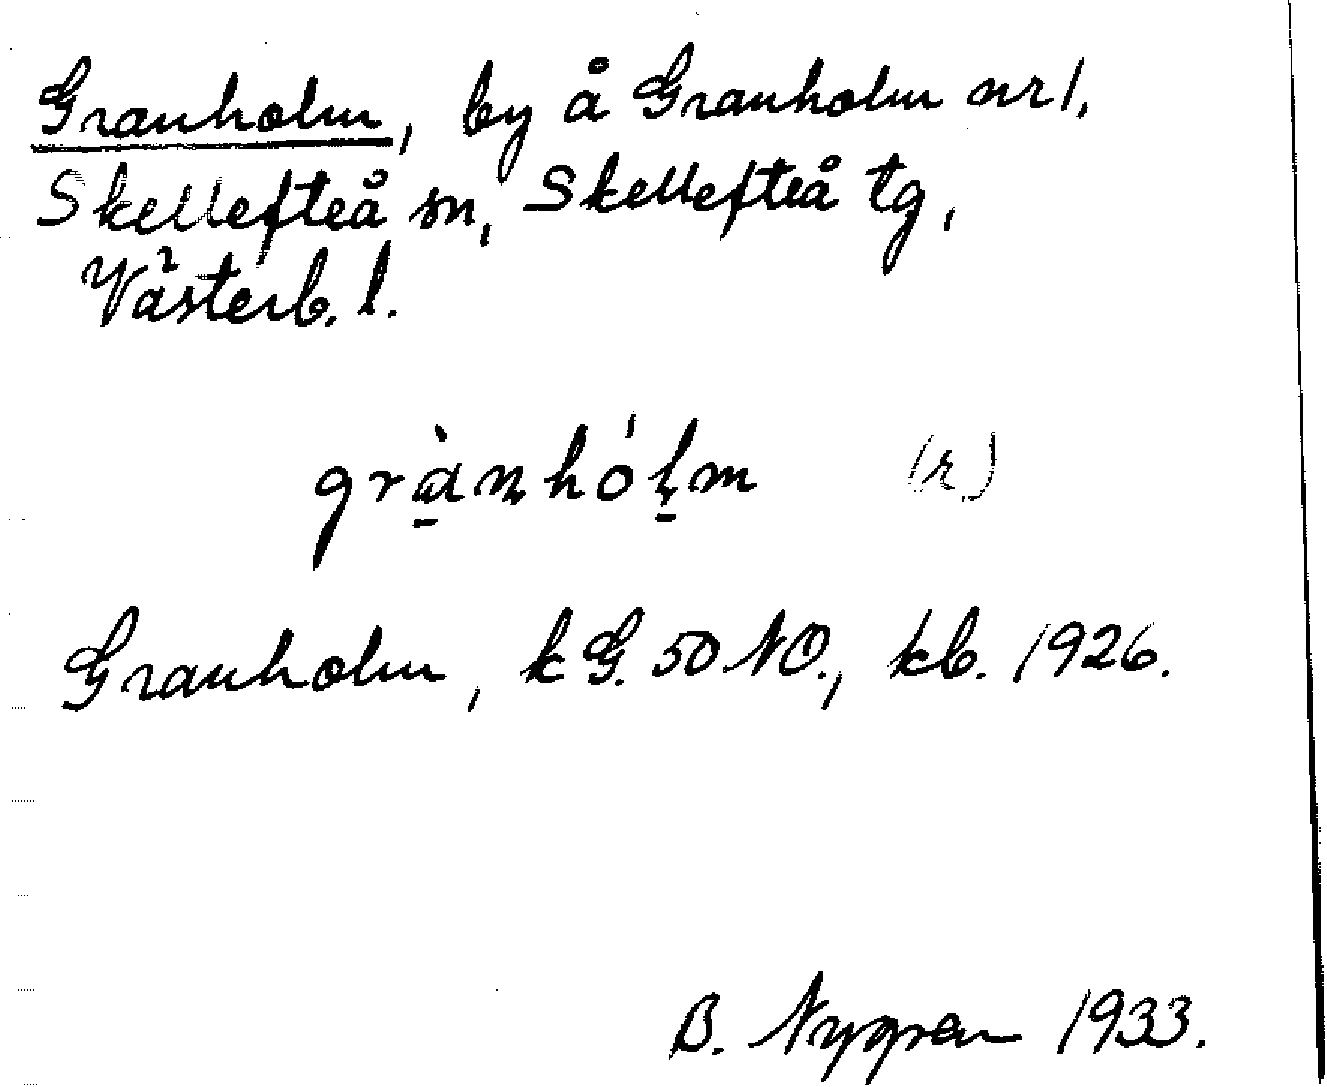 Granholm, by å Granholm nr 1,
Skellefteå sn, Skellefteå tg,
Västerb. l.
grànhólm (r)
Granholm, k G. 50 NO., kb. 1926.
B. Nygren 1933.